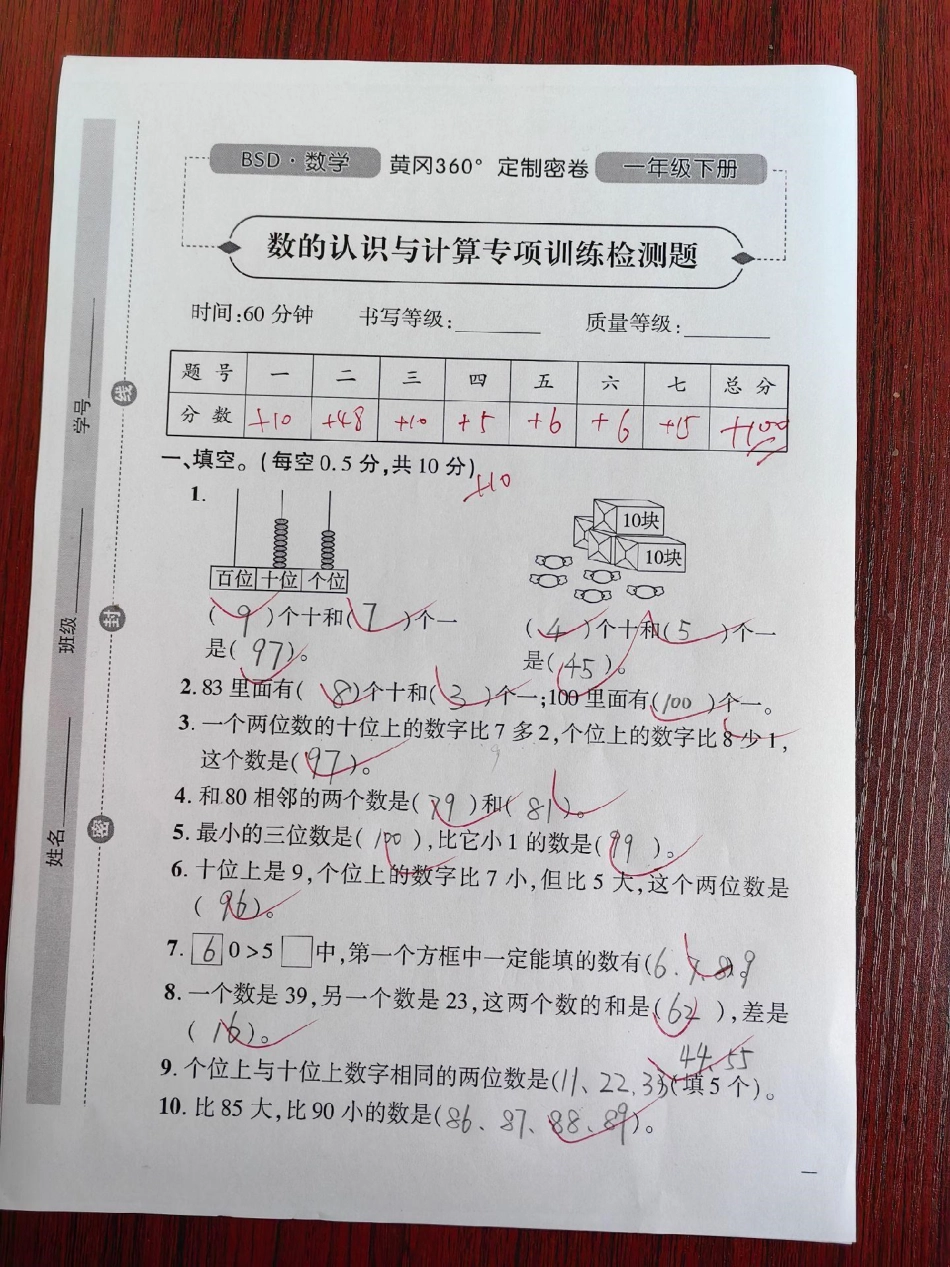 BSD·数学 黄冈360° 定制密卷 一年级下册
数的认识与计算专项训练检测题
时间:60分钟 书写等级: 质量等级:
题号 一 二 三 四 五 六 七 总分
分数 +10 +48 +10 +5 +6 +6 +15 +100
一、填空。(每空0.5分,共10分) +10
1.
10块
10块
百位 十位 个位
(9)个十和(7)个一
是(97)。
(4)个十和(5)个一
是(45)。
2.83里面有(8)个十和(3)个一;100里面有(100)个一。
3.一个两位数的十位上的数字比7多2,个位上的数字比8少1,
9
这个数是(97)。
4.和80相邻的两个数是(79)和(81)。
5.最小的三位数是(100),比它小1的数是(99)。
6.十位上是9,个位上的数字比7小,但比5大,这个两位数是
(96)。
7.6 0>5□中,第一个方框中一定能填的数有(6、7、8、9)。
8.一个数是39,另一个数是23,这两个数的和是(62),差是
(16)。
44、55
9.个位上与十位上数字相同的两位数是(11、22、33)(填5个)。
10.比85大,比90小的数是(86、87、88、89)。
一
学号
班级
姓名
线
封
密